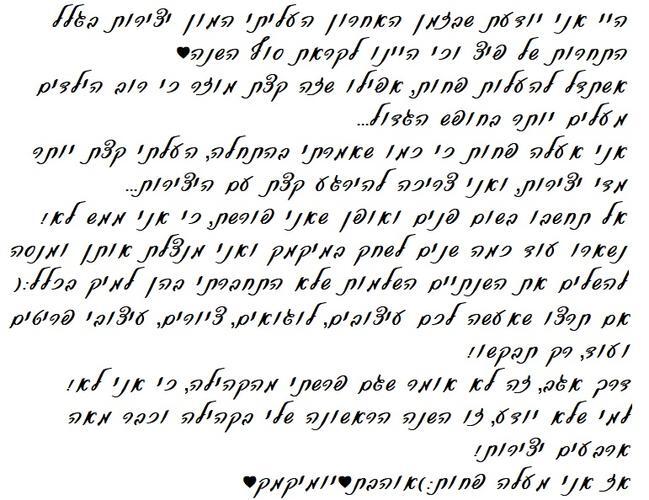 היי אני יודעת שבזמן האחרון העליתי המון יצירות בגלל
התחרות של פיצ וכי היינו לקראת סוף השנה♥
אשתדל להעלות פחות, אפילו שזה קצת מוזר כי רוב הילדים
מעלים יותר בחופש הגדול...
אני אעלה פחות כי כמו שאמרתי בהתחלה, העלתי קצת יותר
מדי יצירות, ואני צריכה להירגע קצת עם היצירות...
אל תחשבו בשום פנים ואופן שאני פורשת, כי אני ממש לא!
נשארו עוד כמה שנים לשחק במיקמק ואני מנצלת אותן ומנסה
להשלים את השנתיים השלמות שלא התחברתי בהן למיק בכלל:(
אם תרצו שאעשה לכם עיצובים, לוגואים, ציורים, עיצובי פריטים
ועוד, רק תבקשו!
דרך אגב, זה לא אומר שגם פרשתי מהקהילה, כי אני לא!
למי שלא יודע, זו השנה הראשונה שלי בקהילה וכבר מאה
ארבעים יצירות!
אז אני מעלה פחות:)אוהבת♥יומיקמק♥